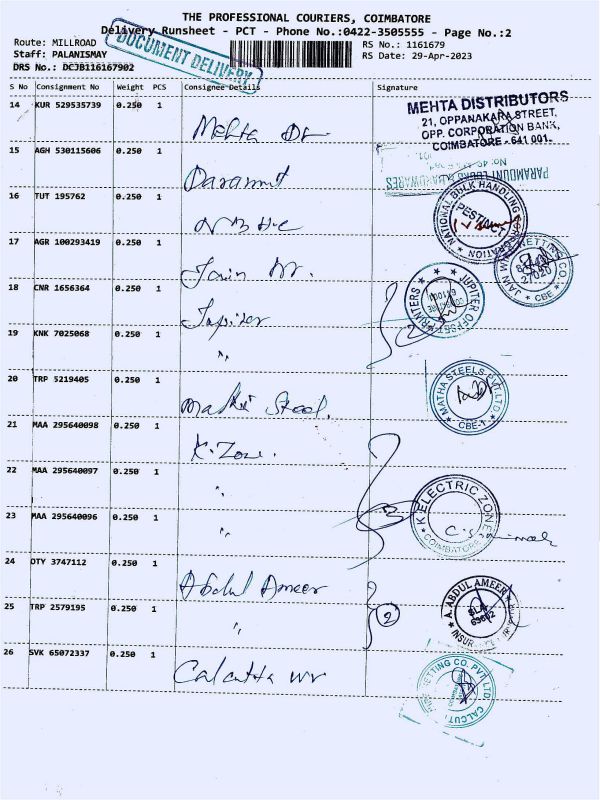 THE PROFESSIONAL COURIERS, COIMBATORE
Delivery Runsheet - PCT - Phone No.:0422-3505555 - Page No.:2
Route: MILLROAD
RS No.: 1161679
Staff: PALANISMAY
RS Date: 29-Apr-2023
DRS No.: DCJB116167902
DOCUMENT DELIVERY
S No Consignment No Weight PCS Consignee Details Signature
14 KUR 529535739 0.250 1
Mehta Dr
MEHTA DISTRIBUTORS
21, OPPANAKARA STREET,
OPP. CORPORATION BANK,
COIMBATORE - 641 001.
15 AGH 530115606 0.250 1
Paramunt
16 TUT 195762 0.250 1
NATIONAL BULK HANDLING CORPORATION
17 AGR 100293419 0.250 1
Jain Wr.
JAIN WIRE NETTING CO.
CBE
18 CNR 1656364 0.250 1
Jupiter
JUPITER OFFSET PRINTERS
19 KNK 7025068 0.250 1
"
20 TRP 5219405 0.250 1
Matha Steel.
MATHA STEELS PVT LTD
CBE-1
21 MAA 295640098 0.250 1
K. Zone.
22 MAA 295640097 0.250 1
"
K ELECTRIC ZONES
COIMBATORE
23 MAA 295640096 0.250 1
"
24 OTY 3747112 0.250 1
Abdul Ameer
A. ABDUL AMEER
25 TRP 2579195 0.250 1
"
2
26 SVK 65072337 0.250 1
Calcutta wr
NETTING CO. PVT. LTD.